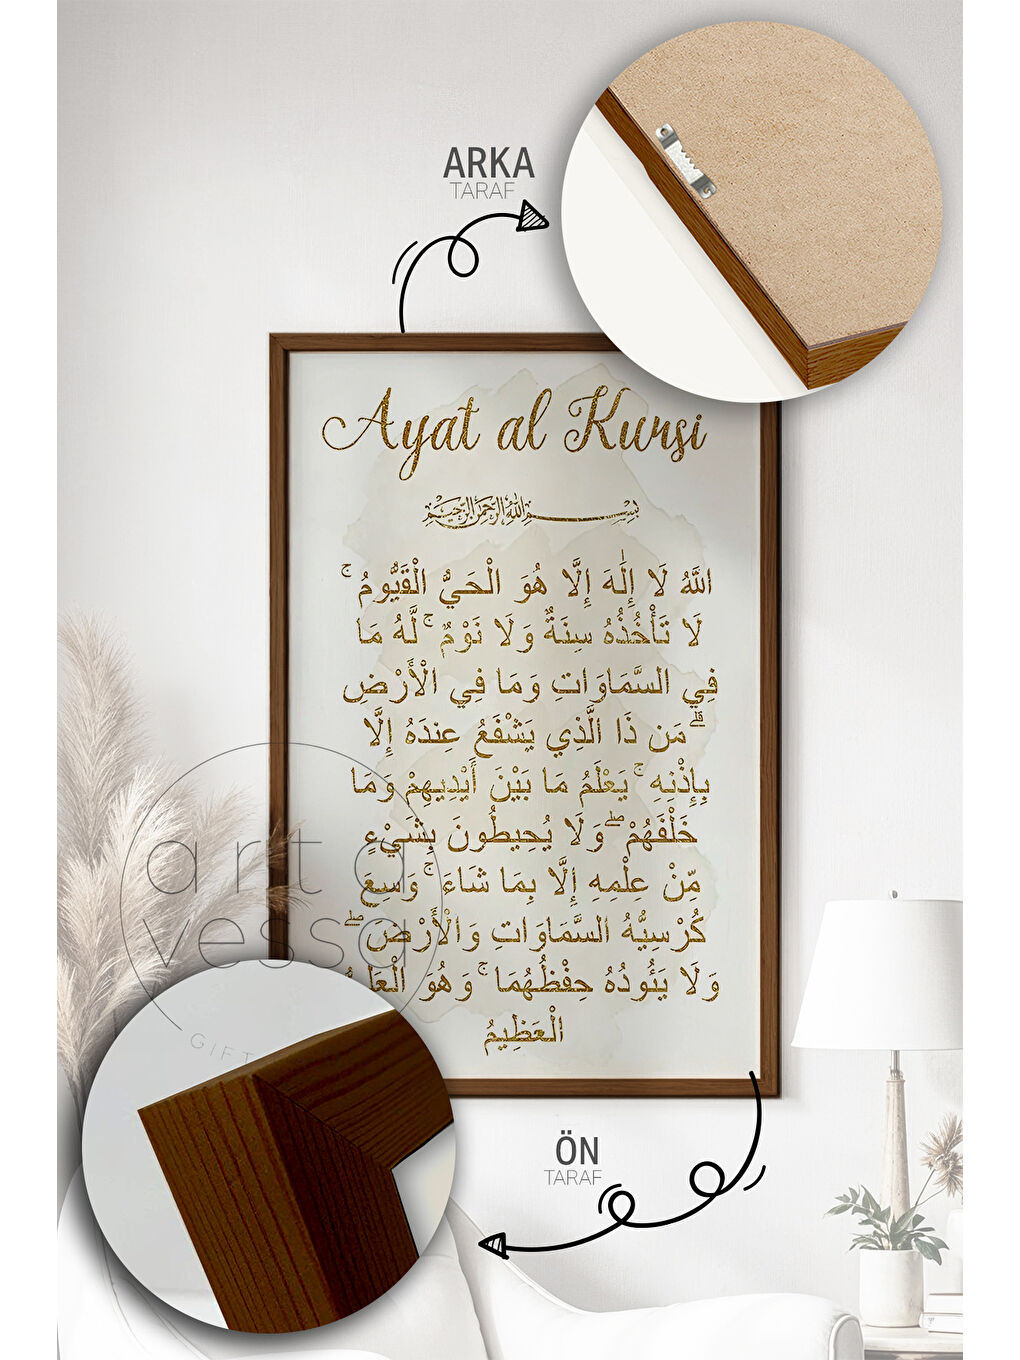 ARKA
TARAF
Ayat al Kursi
بِسْمِ اللهِ الرَّحْمٰنِ الرَّحِيْمِ
اللَّهُ لَا إِلَٰهَ إِلَّا هُوَ الْحَيُّ الْقَيُّومُ ۚ
لَا تَأْخُذُهُ سِنَةٌ وَلَا نَوْمٌ ۚ لَّهُ مَا
فِي السَّمَاوَاتِ وَمَا فِي الْأَرْضِ
ۗ مَن ذَا الَّذِي يَشْفَعُ عِندَهُ إِلَّا
بِإِذْنِهِ ۚ يَعْلَمُ مَا بَيْنَ أَيْدِيهِمْ وَمَا
خَلْفَهُمْ ۖ وَلَا يُحِيطُونَ بِشَيْءٍ
مِّنْ عِلْمِهِ إِلَّا بِمَا شَاءَ ۚ وَسِعَ
كُرْسِيُّهُ السَّمَاوَاتِ وَالْأَرْضَ ۖ
وَلَا يَئُودُهُ حِفْظُهُمَا ۚ وَهُوَ
الْعَظِيمُ
arta
vessa
GIFT
ÖN
TARAF